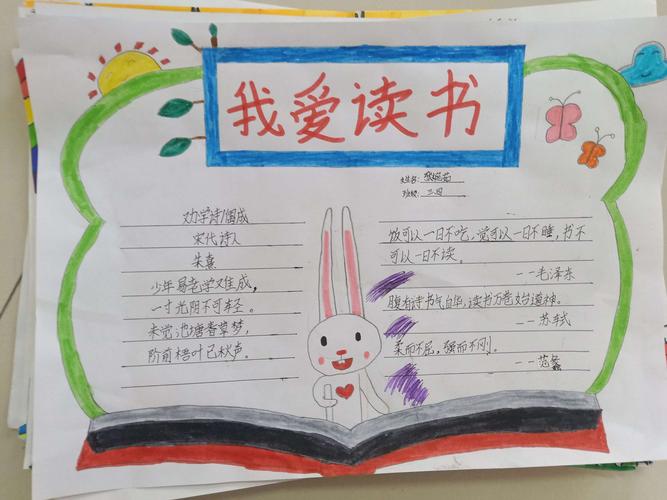 我爱读书
姓名:
班级: 三四
劝学诗/偶成
宋代诗人
朱熹
少年易老学难成,
一寸光阴不可轻。
未觉池塘春草梦,
阶前梧叶已秋声。
饭可以一日不吃,觉可以一日不睡,书不
可以一日不读。
--毛泽东
腹有诗书气自华,读书万卷始通神。
--苏轼
柔而不屈,强而不刚。
--范蠡